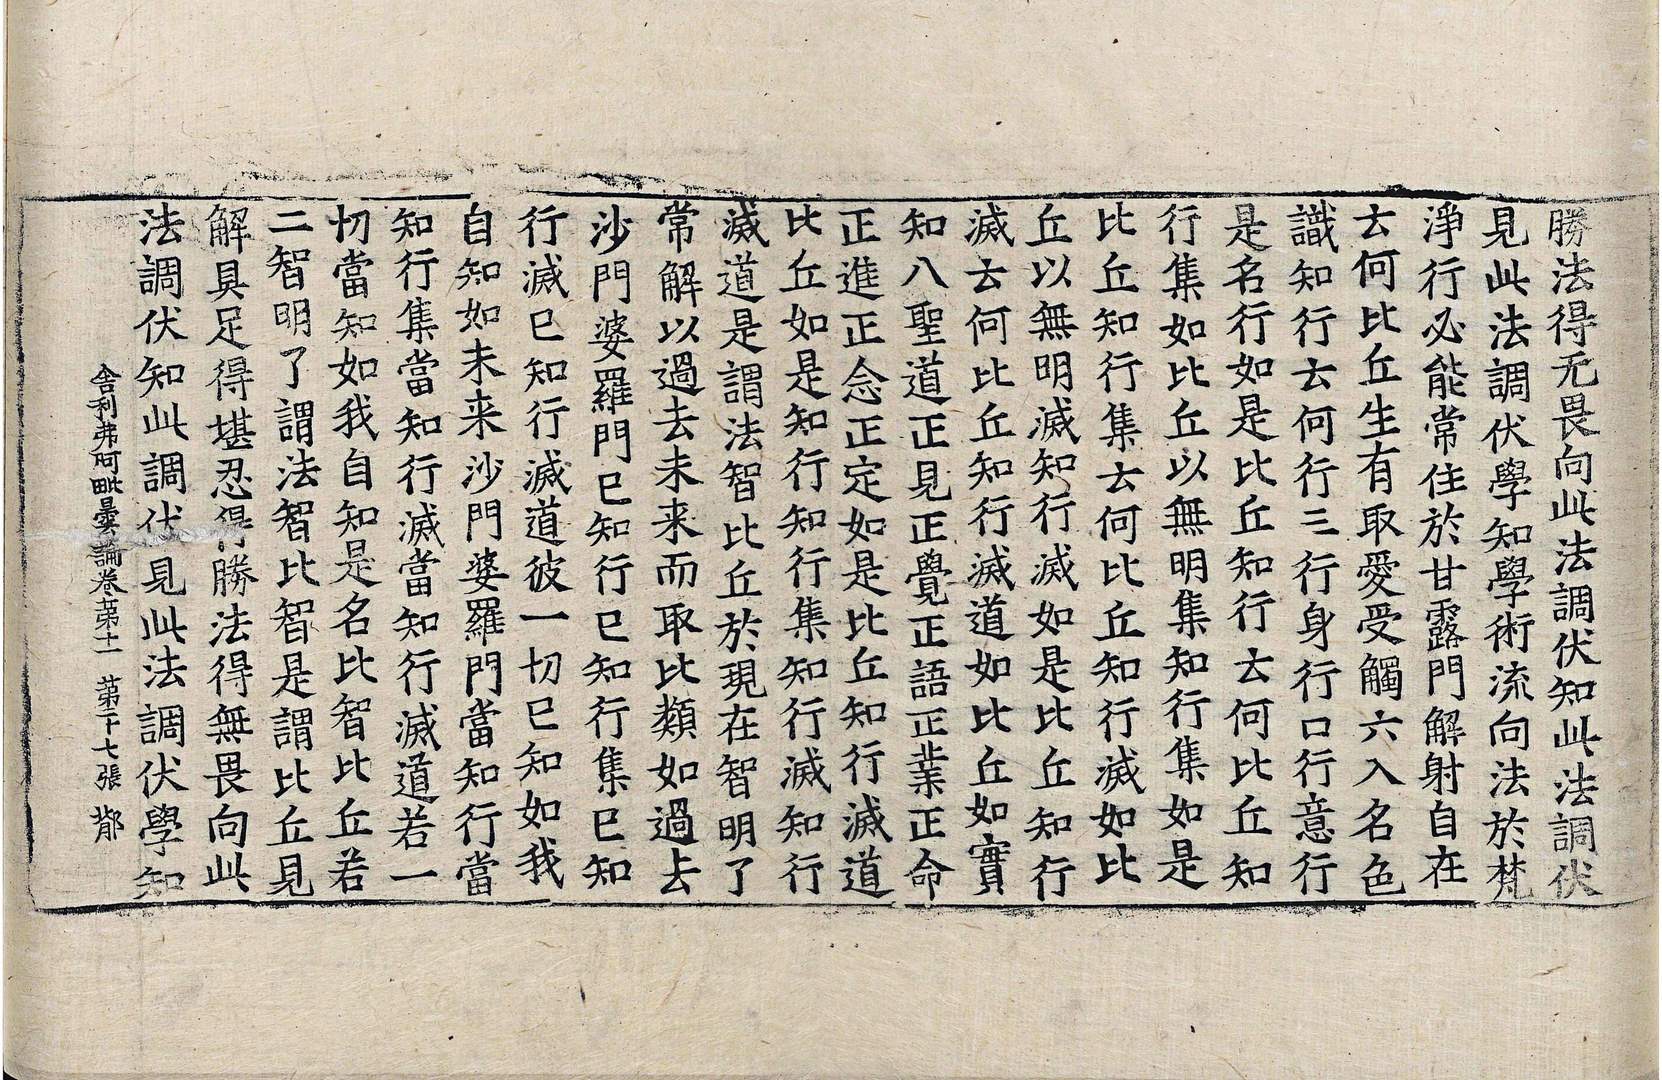 勝法得无畏向此法調伏知此法調伏
見此法調伏學知學術流向法於梵
淨行必能常住於甘露門解射自在
去何比丘生有取愛受觸六入名色
識知行去何行三行身行口行意行
是名行如是比丘知行去何比丘知
行集如比丘以無明集知行集如是
比丘知行集去何比丘知行滅如比
丘以無明滅知行滅如是比丘知行
滅去何比丘知行滅道如比丘如實
知八聖道正見正覺正語正業正命
正進正念正定如是比丘知行滅道
比丘如是知行知行集知行滅知行
滅道是謂法智比丘於現在智明了
常解以過去未来而取比類如過去
沙門婆羅門已知行已知行集已知
行滅已知行滅道彼一切已知如我
自知如未来沙門婆羅門當知行當
知行集當知行滅當知行滅道若一
切當知如我自知是名比智比丘若
二智明了謂法智比智是謂比丘見
解具足得堪忍得勝法得無畏向此
法調伏知此調伏見此法調伏學知
舍利弗阿毗曇論卷第十一 第二十七張 鄁